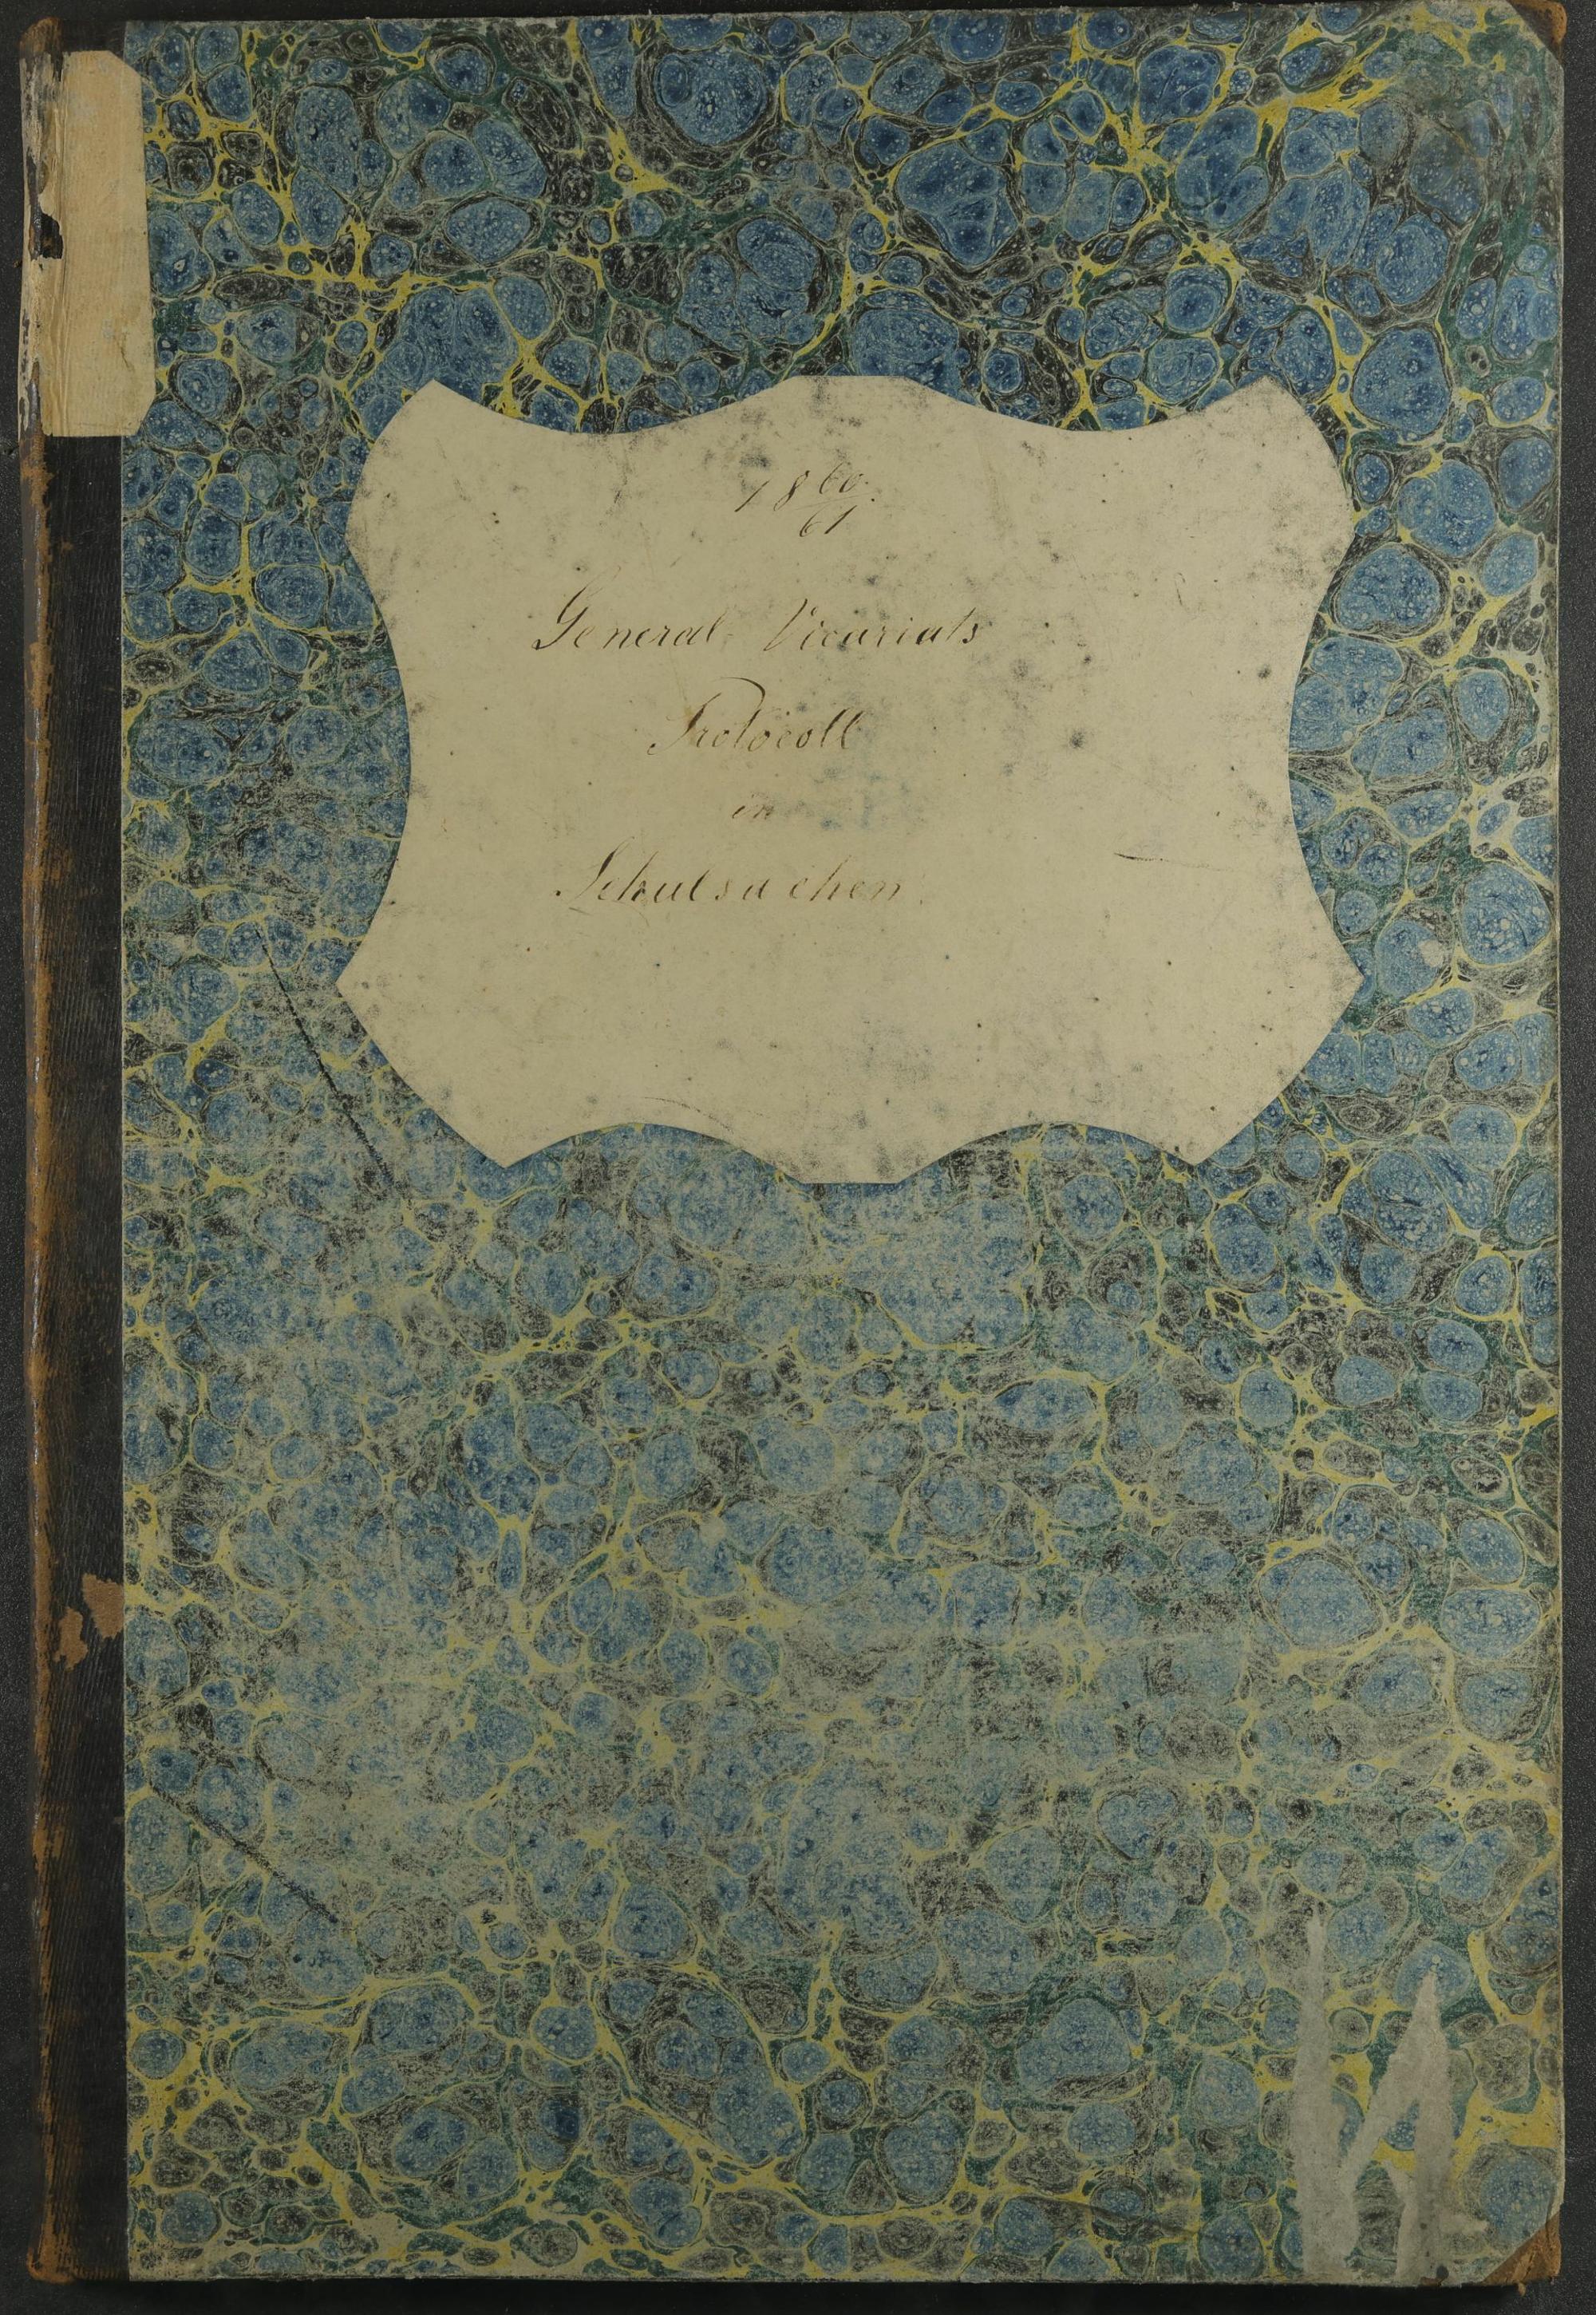 18 60/61
General Vicariats
Protocoll
in
Schulsachen.